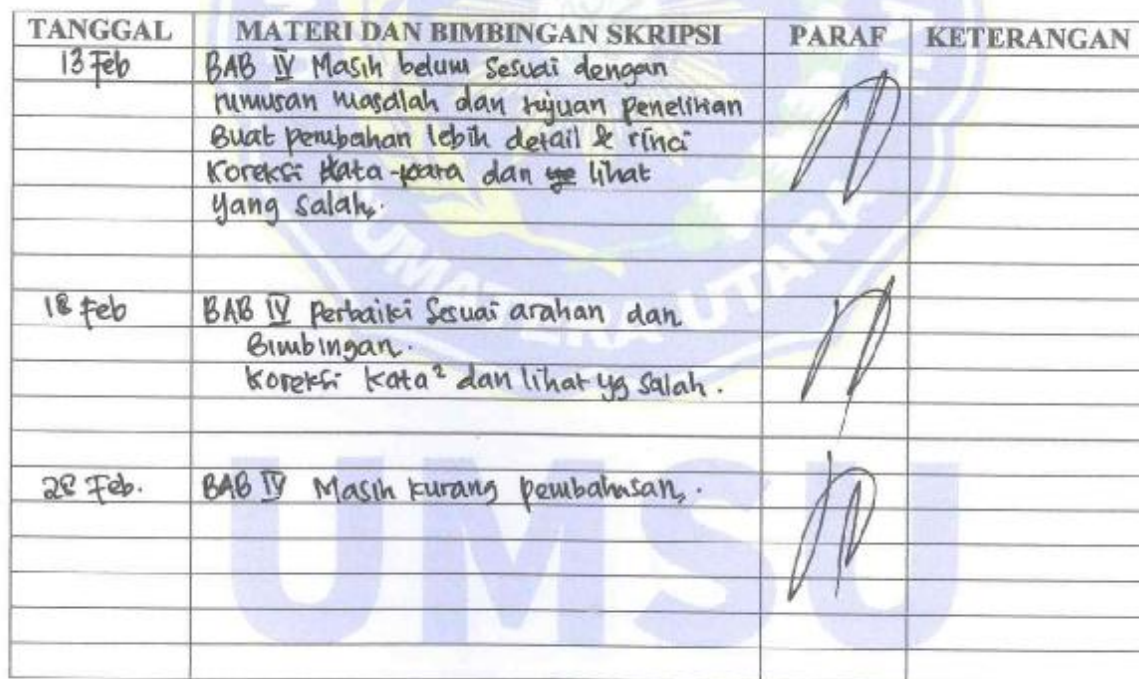 TANGGAL MATERI DAN BIMBINGAN SKRIPSI PARAF KETERANGAN
13 Feb BAB IV Masih belum Sesuai dengan
rumusan masalah dan tujuan penelitian
Buat perubahan lebih detail & rinci
Koreksi kata-kata dan lihat
yang salah.
18 Feb BAB IV Perbaiki Sesuai arahan dan
Bimbingan.
Koreksi kata² dan lihat yg salah.
28 Feb. BAB IV Masih kurang pembahasan.
UMATERA UTARA
UMSU